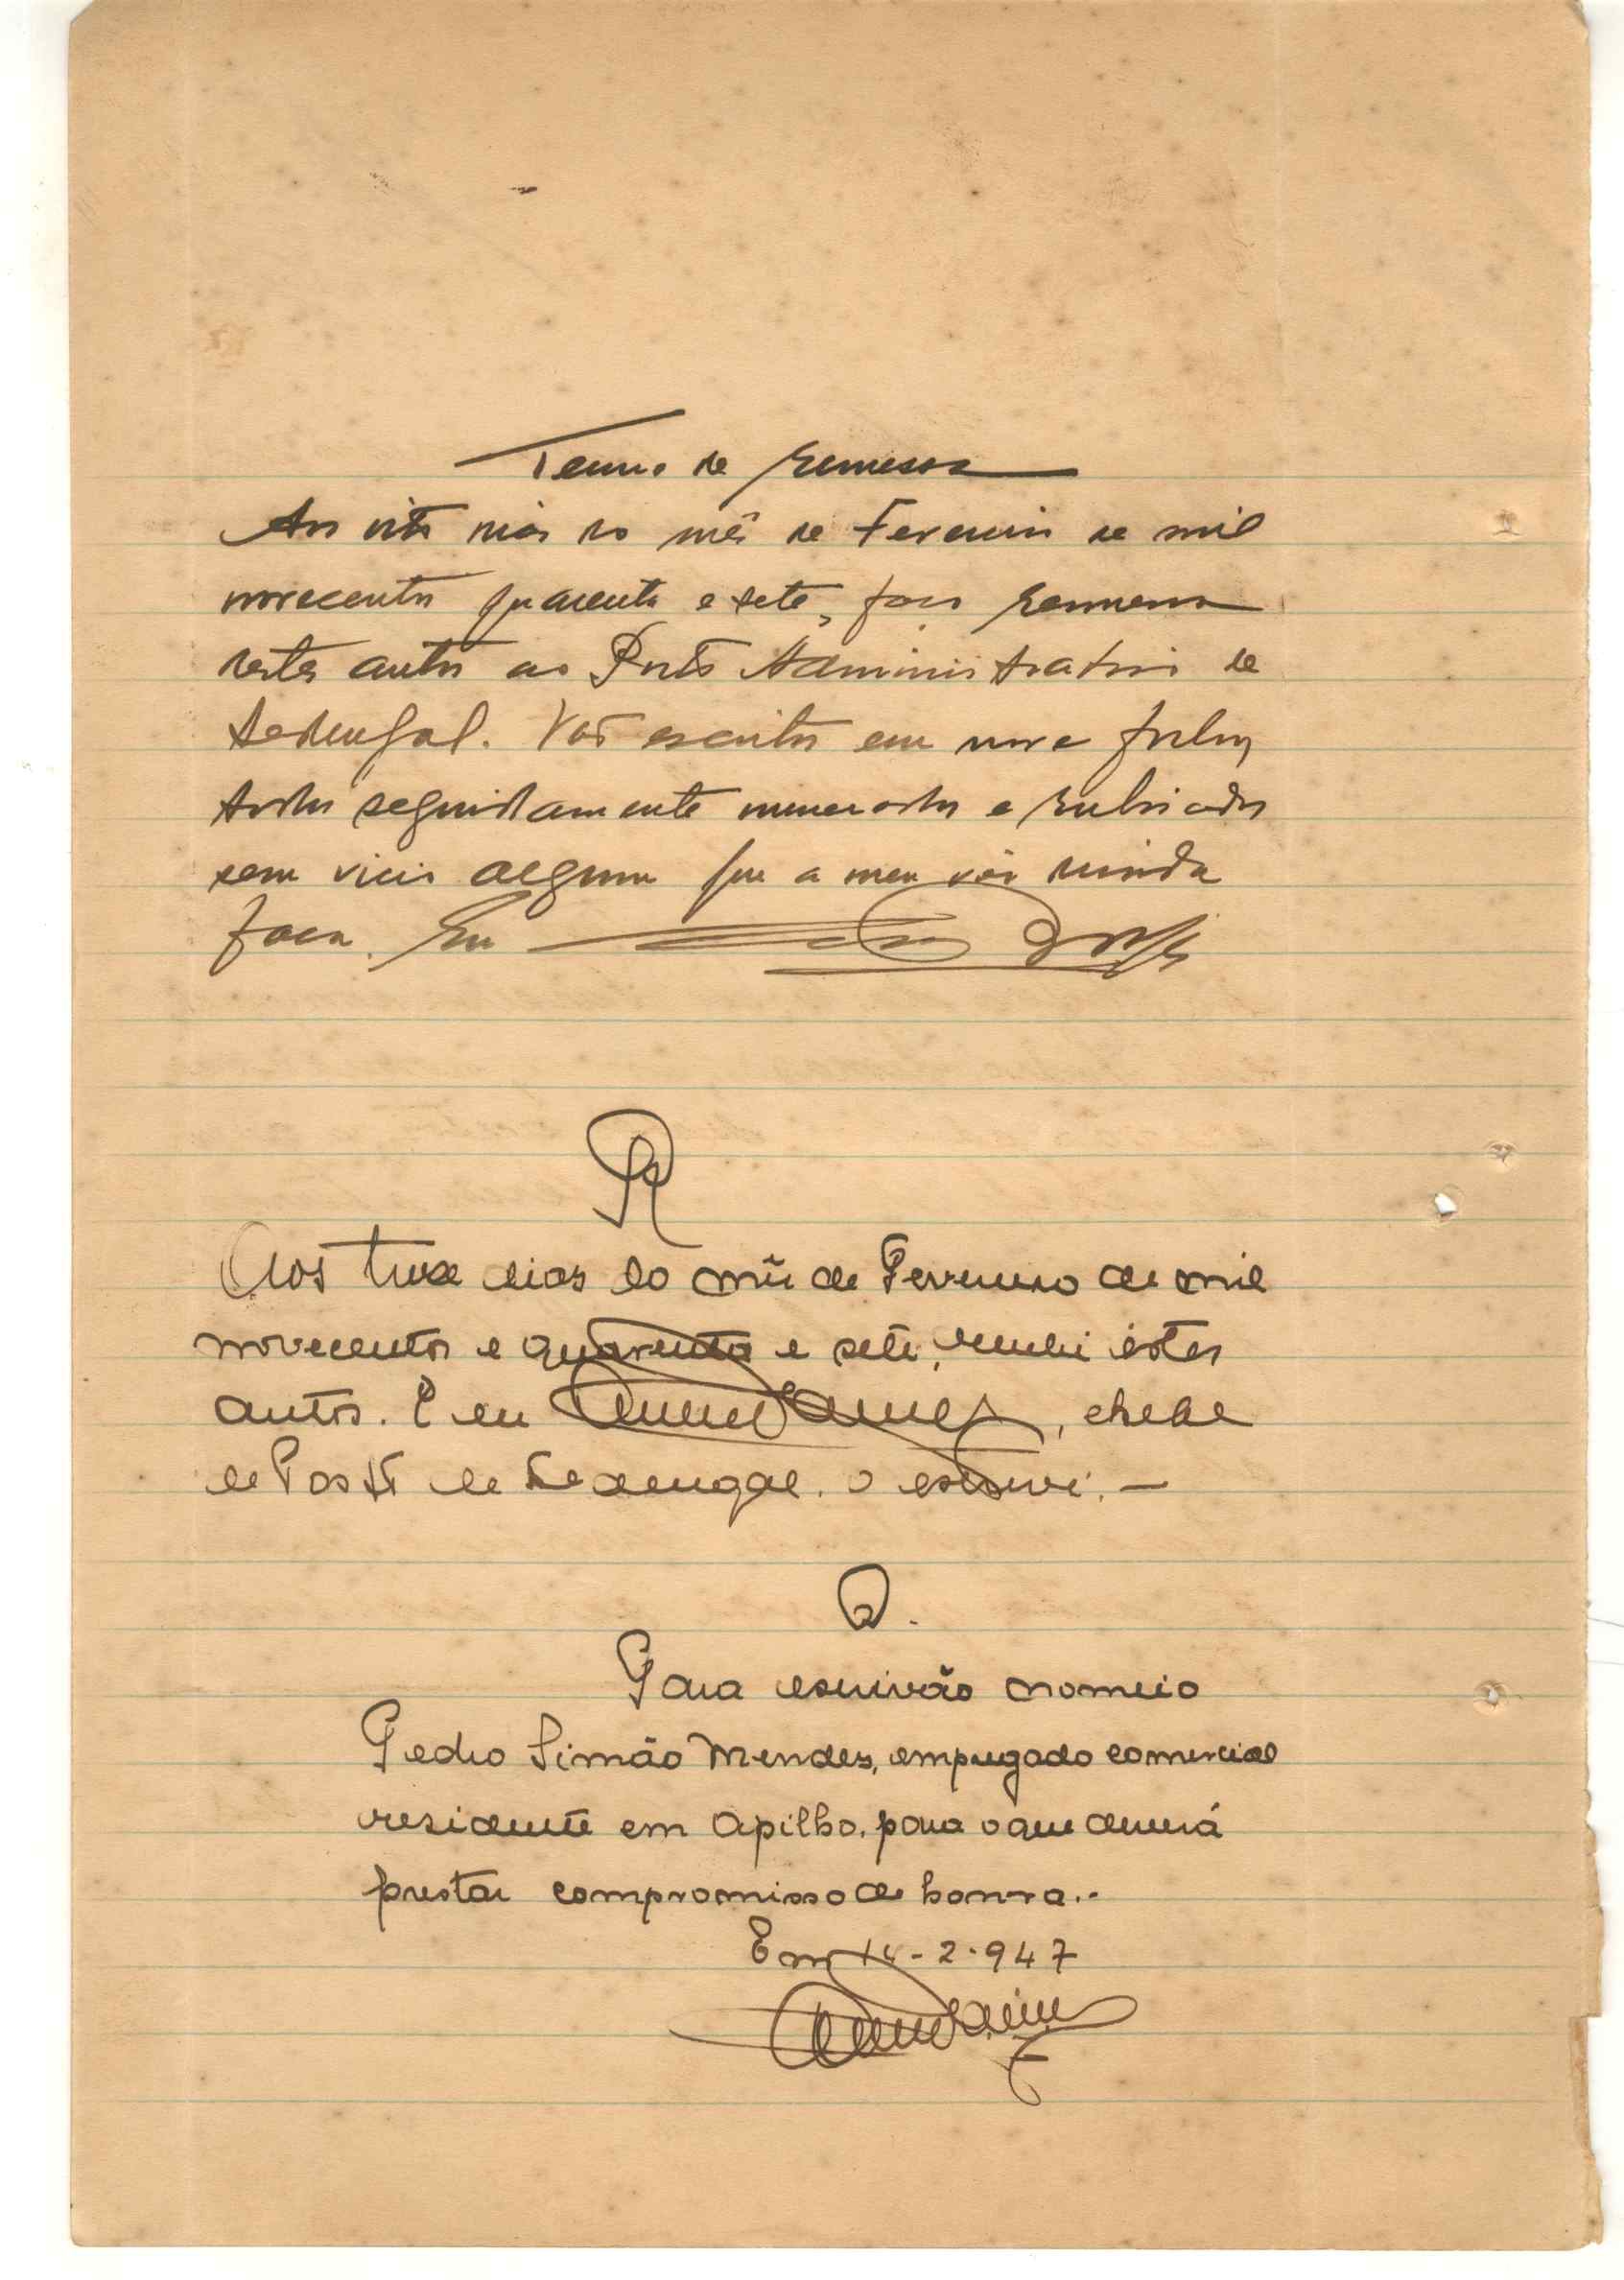 Termo de remessa
Aos oito dias do mês de Fevereiro de mil
novecentos quarenta e sete, faço remessa
destes autos ao Posto Administrativo de
Sedengal. Vão escritos em nove folhas
todas seguidamente numeradas e rubricadas
sem vicio algum que a meu vêr duvida
faça. Eu
R
Aos treze dias do mês de Fevereiro de mil
novecentos e quarenta e sete, recebi êstes
autos. E eu , chefe
de Posto de Sedengal, o escrevi.—
D.
Para escrivão nomeio
Pedro Simão Mendes, empregado comercial
residente em Apilho, para o que deverá
prestar compromisso de honra.-
Em 14-2-947